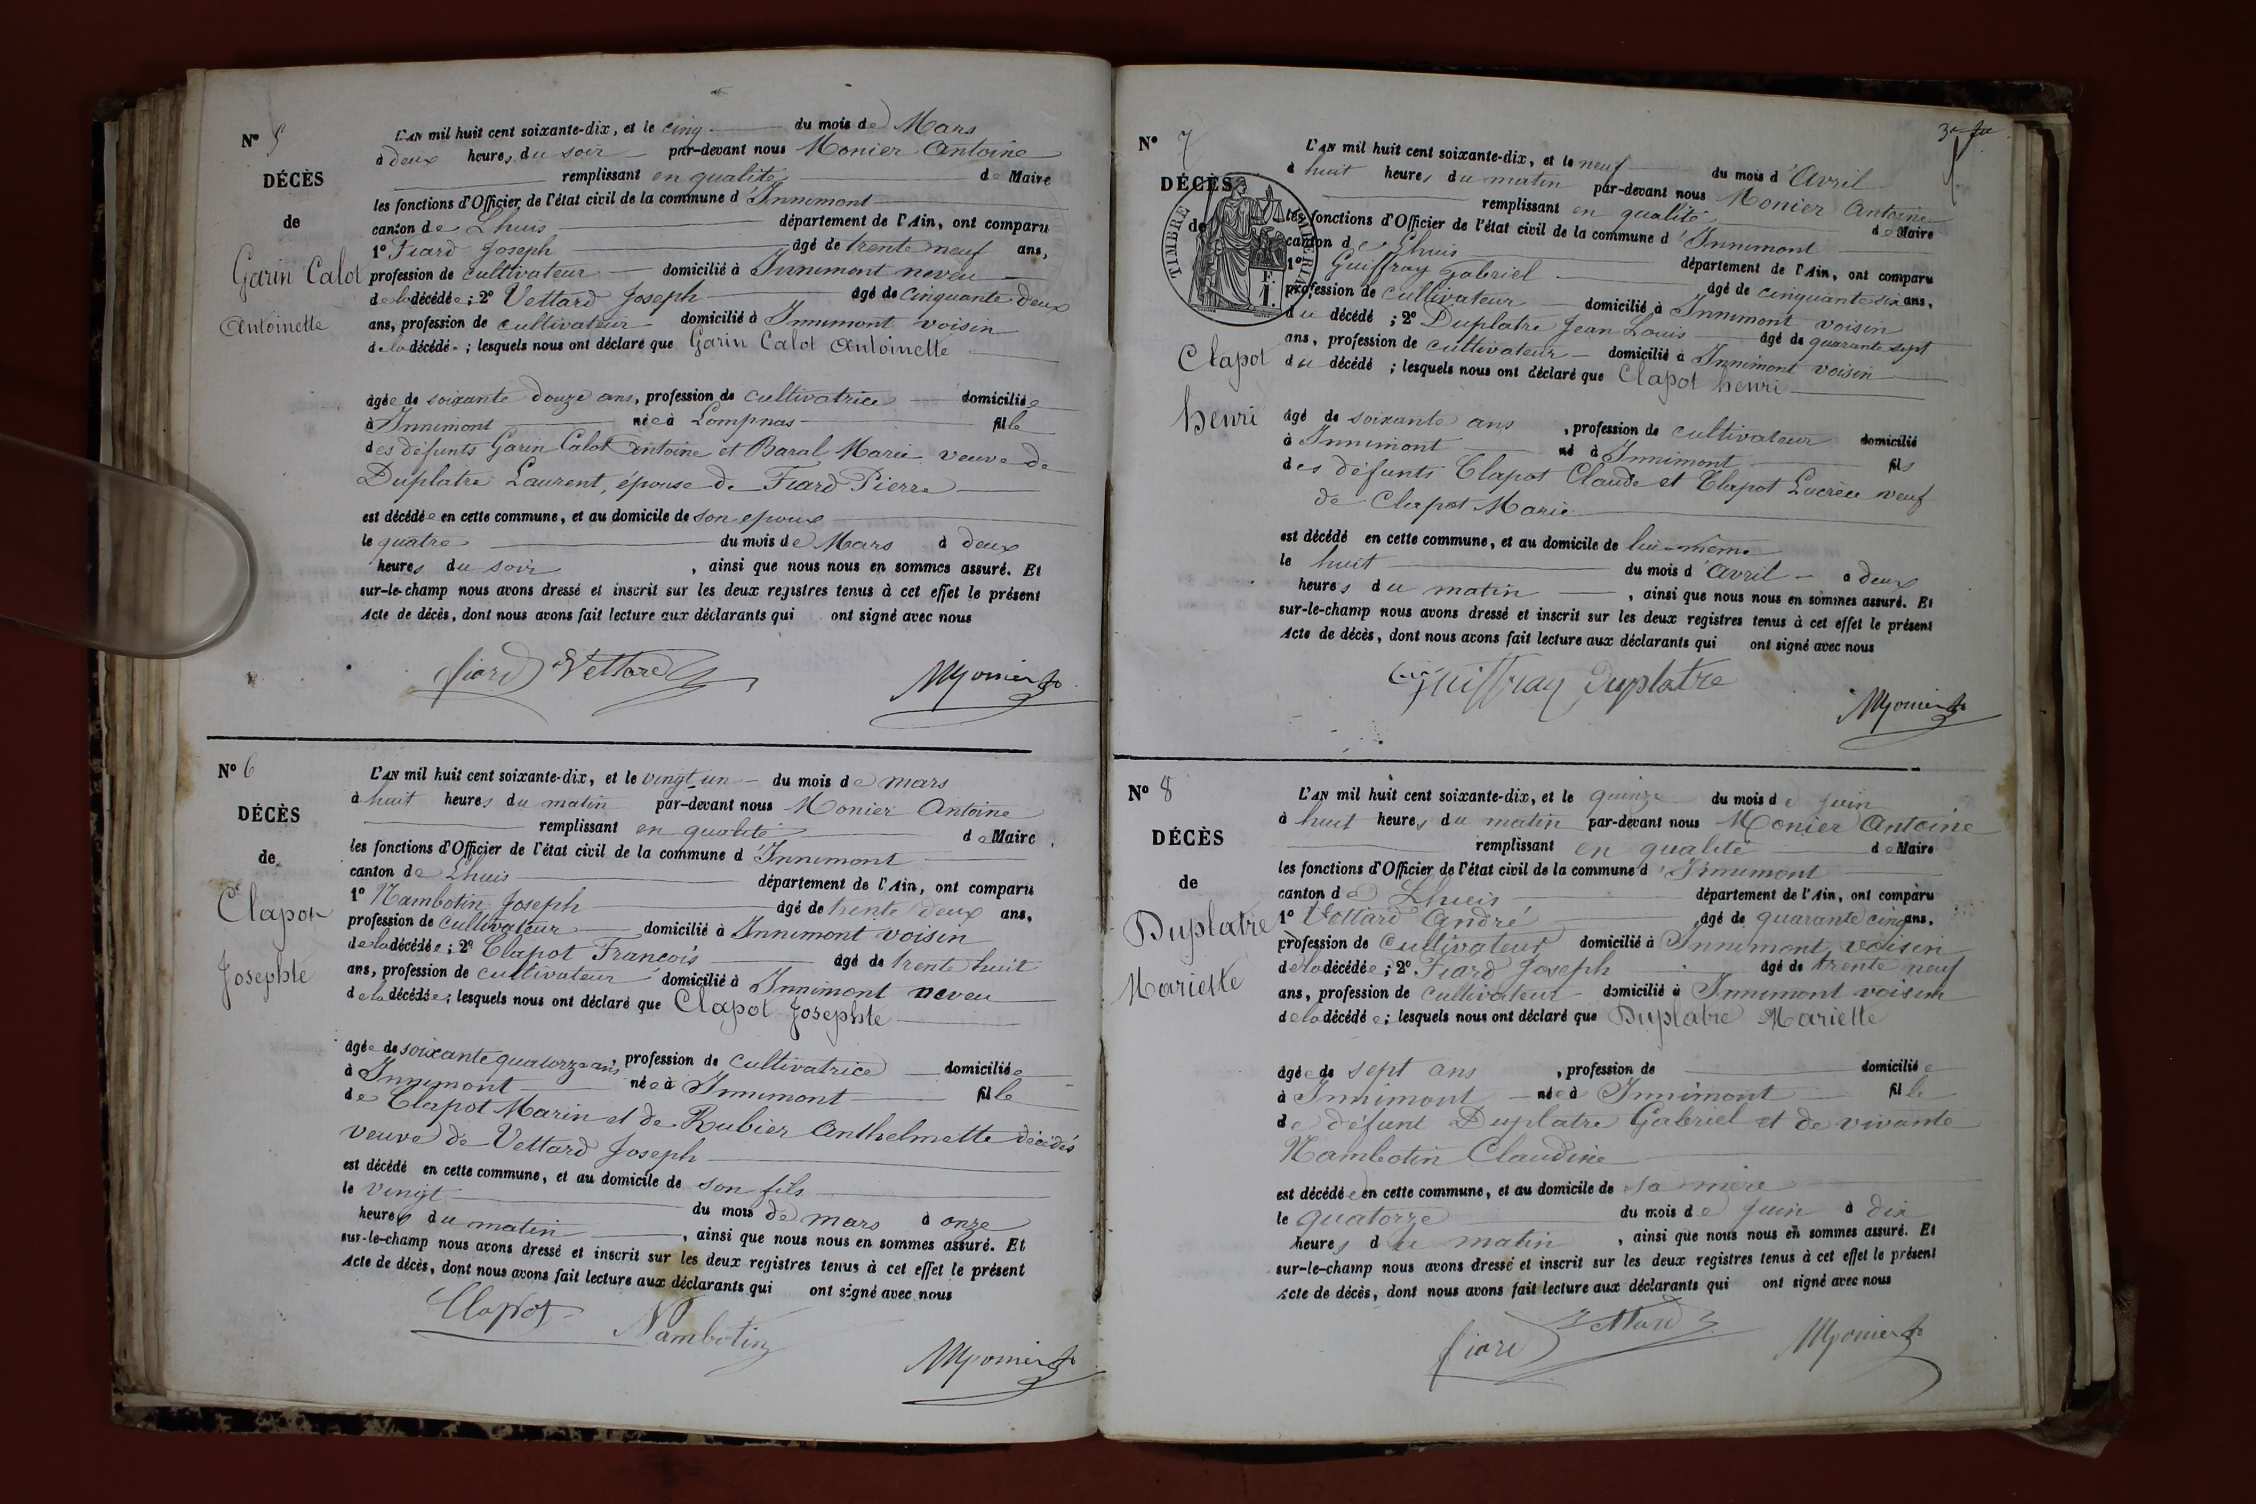 N° 5
DÉCÈS
de
Garin Calot
Antoinette
L'AN mil huit cent soixante-dix, et le cinq du mois de Mars
à deux heures du soir par-devant nous Monier Antoine
remplissant en qualité de Maire
les fonctions d'Officier de l'état civil de la commune d'Innimont
canton de Lhuis département de l'Ain, ont comparu
1° Fiard Joseph âgé de trente neuf ans,
profession de cultivateur domicilié à Innimont neveu
de la décédée ; 2° Vettard Joseph âgé de cinquante deux
ans, profession de cultivateur domicilié à Innimont voisin
de la décédée ; lesquels nous ont déclaré que Garin Calot Antoinette
âgée de soixante douze ans, profession de cultivatrice domiciliée
à Innimont née à Lompnas fille
des défunts Garin Calot Antoine et Baral Marie veuve de
Duplatre Laurent, épouse de Fiard Pierre
est décédée en cette commune, et au domicile de son époux
le quatre du mois de Mars à deux
heures du soir, ainsi que nous nous en sommes assuré. Et
sur-le-champ nous avons dressé et inscrit sur les deux registres tenus à cet effet le présent
Acte de décès, dont nous avons fait lecture aux déclarants qui ont signé avec nous
fiard Vettard Monier
N° 6
DÉCÈS
de
Clapot
Josephte
L'AN mil huit cent soixante-dix, et le vingt-un du mois de mars
à huit heures du matin par-devant nous Monier Antoine
remplissant en qualité de Maire
les fonctions d'Officier de l'état civil de la commune d'Innimont
canton de Lhuis département de l'Ain, ont comparu
1° Nambotin Joseph âgé de trente deux ans,
profession de cultivateur domicilié à Innimont voisin
de la décédée ; 2° Clapot François âgé de trente huit
ans, profession de cultivateur domicilié à Innimont neveu
de la décédée ; lesquels nous ont déclaré que Clapot Josephte
âgée de soixante quatorze ans, profession de cultivatrice domiciliée
à Innimont née à Innimont fille
de Clapot Marin et de Rubier Anthelmette décédés
veuve de Vettard Joseph
est décédé en cette commune, et au domicile de son fils
le vingt du mois de mars à onze
heures du matin, ainsi que nous nous en sommes assuré. Et
sur-le-champ nous avons dressé et inscrit sur les deux registres tenus à cet effet le présent
Acte de décès, dont nous avons fait lecture aux déclarants qui ont signé avec nous
Clapot Nambotin
Monier
3e
N° 7
DÉCÈS
de
TIMBRE IMPÉRIAL
1 F.
Clapot
henri
L'AN mil huit cent soixante-dix, et le neuf du mois d'Avril
à huit heures du matin par-devant nous Monier Antoine
remplissant en qualité de Maire
les fonctions d'Officier de l'état civil de la commune d'Innimont
canton de Lhuis département de l'Ain, ont comparu
1° Guiffray Gabriel âgé de cinquante six ans,
profession de cultivateur domicilié à Innimont voisin
du décédé ; 2° Duplatre Jean Louis âgé de quarante sept
ans, profession de cultivateur domicilié à Innimont voisin
du décédé ; lesquels nous ont déclaré que Clapot henri
âgé de soixante ans, profession de cultivateur domicilié
à Innimont né à Innimont fils
des défunts Clapot Claude et Clapot Lucrèce veuf
de Clapot Marie
est décédé en cette commune, et au domicile de lui même
le huit du mois d'Avril à deux
heures du matin, ainsi que nous nous en sommes assuré. Et
sur-le-champ nous avons dressé et inscrit sur les deux registres tenus à cet effet le présent
Acte de décès, dont nous avons fait lecture aux déclarants qui ont signé avec nous
Guiffray Duplatre
Monier
N° 8
DÉCÈS
de
Duplatre
Mariette
L'AN mil huit cent soixante-dix, et le quinze du mois de juin
à huit heures du matin par-devant nous Monier Antoine
remplissant en qualité de Maire
les fonctions d'Officier de l'état civil de la commune d'Innimont
canton de Lhuis département de l'Ain, ont comparu
1° Vettard André âgé de quarante cinq ans,
profession de cultivateur domicilié à Innimont voisin
de la décédée ; 2° Fiard Joseph âgé de trente neuf
ans, profession de cultivateur domicilié à Innimont voisin
de la décédée ; lesquels nous ont déclaré que Duplatre Mariette
âgée de sept ans, profession de domiciliée
à Innimont née à Innimont fille
de défunt Duplatre Gabriel et de vivante
Nambotin Claudine
est décédée en cette commune, et au domicile de sa mère
le quatorze du mois de juin à dix
heures du matin, ainsi que nous nous en sommes assuré. Et
sur-le-champ nous avons dressé et inscrit sur les deux registres tenus à cet effet le présent
Acte de décès, dont nous avons fait lecture aux déclarants qui ont signé avec nous
fiard Vettard Monier